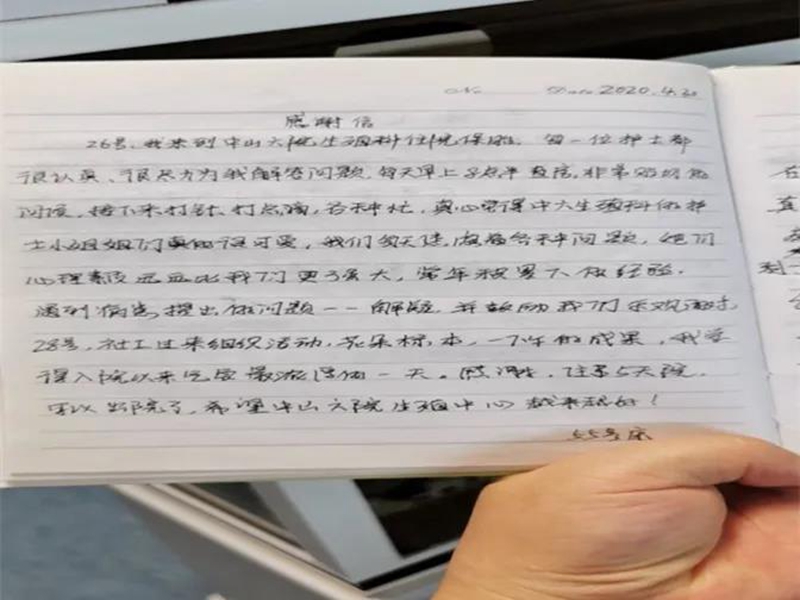 No Date 2020.4.30
感谢信
26号,我来到中山六院生殖科住院保胎。每一位护士都
很认真、很尽力为我解答问题,每天早上8点半查房,非常的
问候,接下来打针、打点滴,各种忙,真心觉得中大生殖科的护
士小姐姐们真的很可爱,我们每天使 着各种问题,她们
心理素质远远比我们更强大,常年积累下做经验.
遇到病患提出的问题一一解疑,并鼓励我们乐观面对
28号,社工过来组织活动,花朵标本,一下午的成果,我觉
得入院以来 最 的一天。 ,住了5天院,
可以出院了,希望中山六院生殖中心越来越好!
55号床
在
直
到